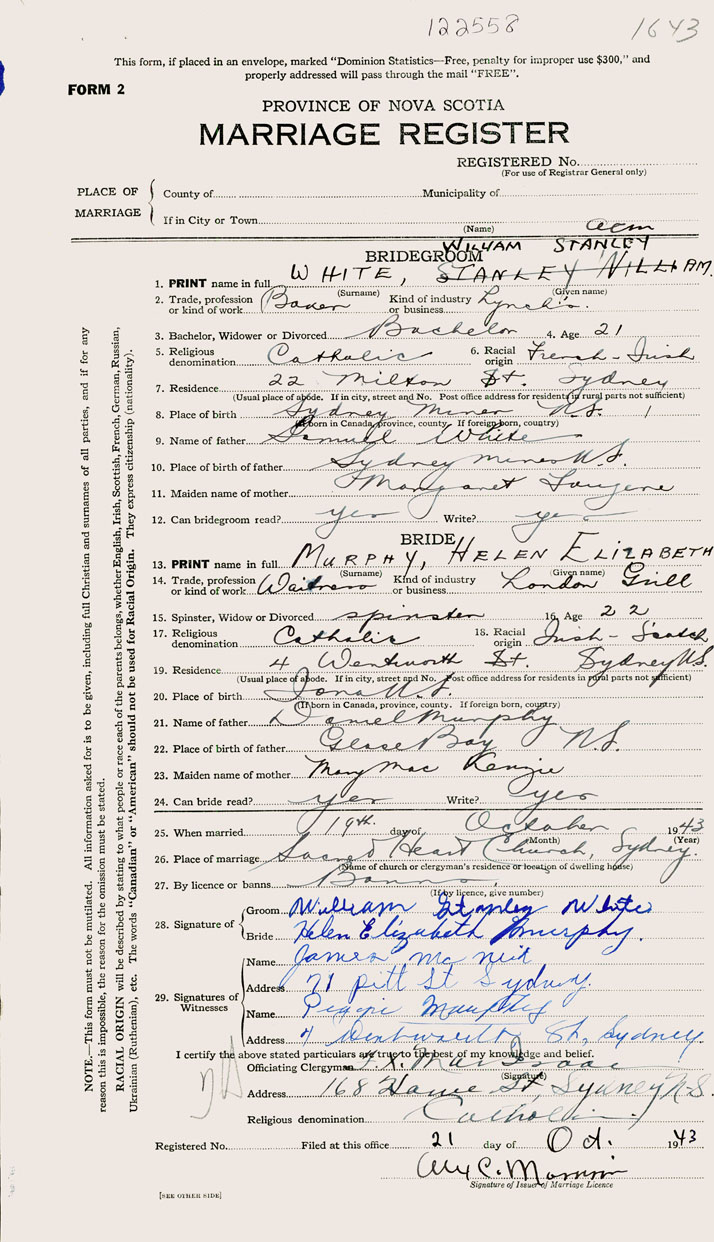 122558 1643
This form, if placed in an envelope, marked "Dominion Statistics—Free, penalty for improper use $300," and
properly addressed will pass through the mail "FREE".
FORM 2
PROVINCE OF NOVA SCOTIA
MARRIAGE REGISTER
REGISTERED No.
(For use of Registrar General only)
PLACE OF MARRIAGE
County of Municipality of
If in City or Town
(Name)
BRIDEGROOM
WILLIAM STANLEY
1. PRINT name in full WHITE, STANLEY WILLIAM
(Surname) (Given name)
2. Trade, profession or kind of work Kind of industry or business Lynch's
3. Bachelor, Widower or Divorced Bachelor 4. Age 21
5. Religious denomination Catholic 6. Racial origin French - Irish
7. Residence 22 Milton St. Sydney
(Usual place of abode. If in city, street and No. Post office address for residents in rural parts not sufficient)
8. Place of birth Sydney Mines N.S.
(If born in Canada, province, county. If foreign born, country)
9. Name of father Samuel White
10. Place of birth of father Sydney Mines N.S.
11. Maiden name of mother Margaret
12. Can bridegroom read? yes Write? yes
BRIDE
13. PRINT name in full MURPHY, HELEN ELIZABETH
(Surname) (Given name)
14. Trade, profession or kind of work Waitress Kind of industry or business London Grill
15. Spinster, Widow or Divorced spinster 16. Age 22
17. Religious denomination Catholic 18. Racial origin Irish - Scotch
19. Residence 4 Wentworth St. Sydney N.S.
(Usual place of abode. If in city, street and No. Post office address for residents in rural parts not sufficient)
20. Place of birth Iona N.S.
(If born in Canada, province, county. If foreign born, country)
21. Name of father Daniel Murphy
22. Place of birth of father Glace Bay N.S.
23. Maiden name of mother Mary Mac Kenzie
24. Can bride read? yes Write? yes
25. When married 19th day of October 1943
(Month) (Year)
26. Place of marriage Sacred Heart Church, Sydney.
(Name of church or clergyman's residence or location of dwelling house)
27. By licence or banns Banns
(If by licence, give number)
28. Signature of
Groom William Stanley White
Bride Helen Elizabeth Murphy.
29. Signatures of Witnesses
Name James Mc Neil
Address 71 Pitt St Sydney.
Name Murphy
Address 4 Wentworth St, Sydney
I certify the above stated particulars are true to the best of my knowledge and belief.
Officiating Clergyman Mac Isaac
(Signature)
Address 168 St, Sydney N.S.
Religious denomination Catholic
Registered No. Filed at this office 21 day of Oct. 1943
Signature of Issuer of Marriage Licence
[SEE OTHER SIDE]
NOTE.—This form must not be mutilated. All information asked for is to be given, including full Christian and surnames of all parties, and if for any
reason this is impossible, the reason for the omission must be stated.
RACIAL ORIGIN will be described by stating to what people or race each of the parents belongs, whether English, Irish, Scottish, French, German, Russian,
Ukrainian (Ruthenian), etc. The words "Canadian" or "American" should not be used for Racial Origin. They express citizenship (nationality).